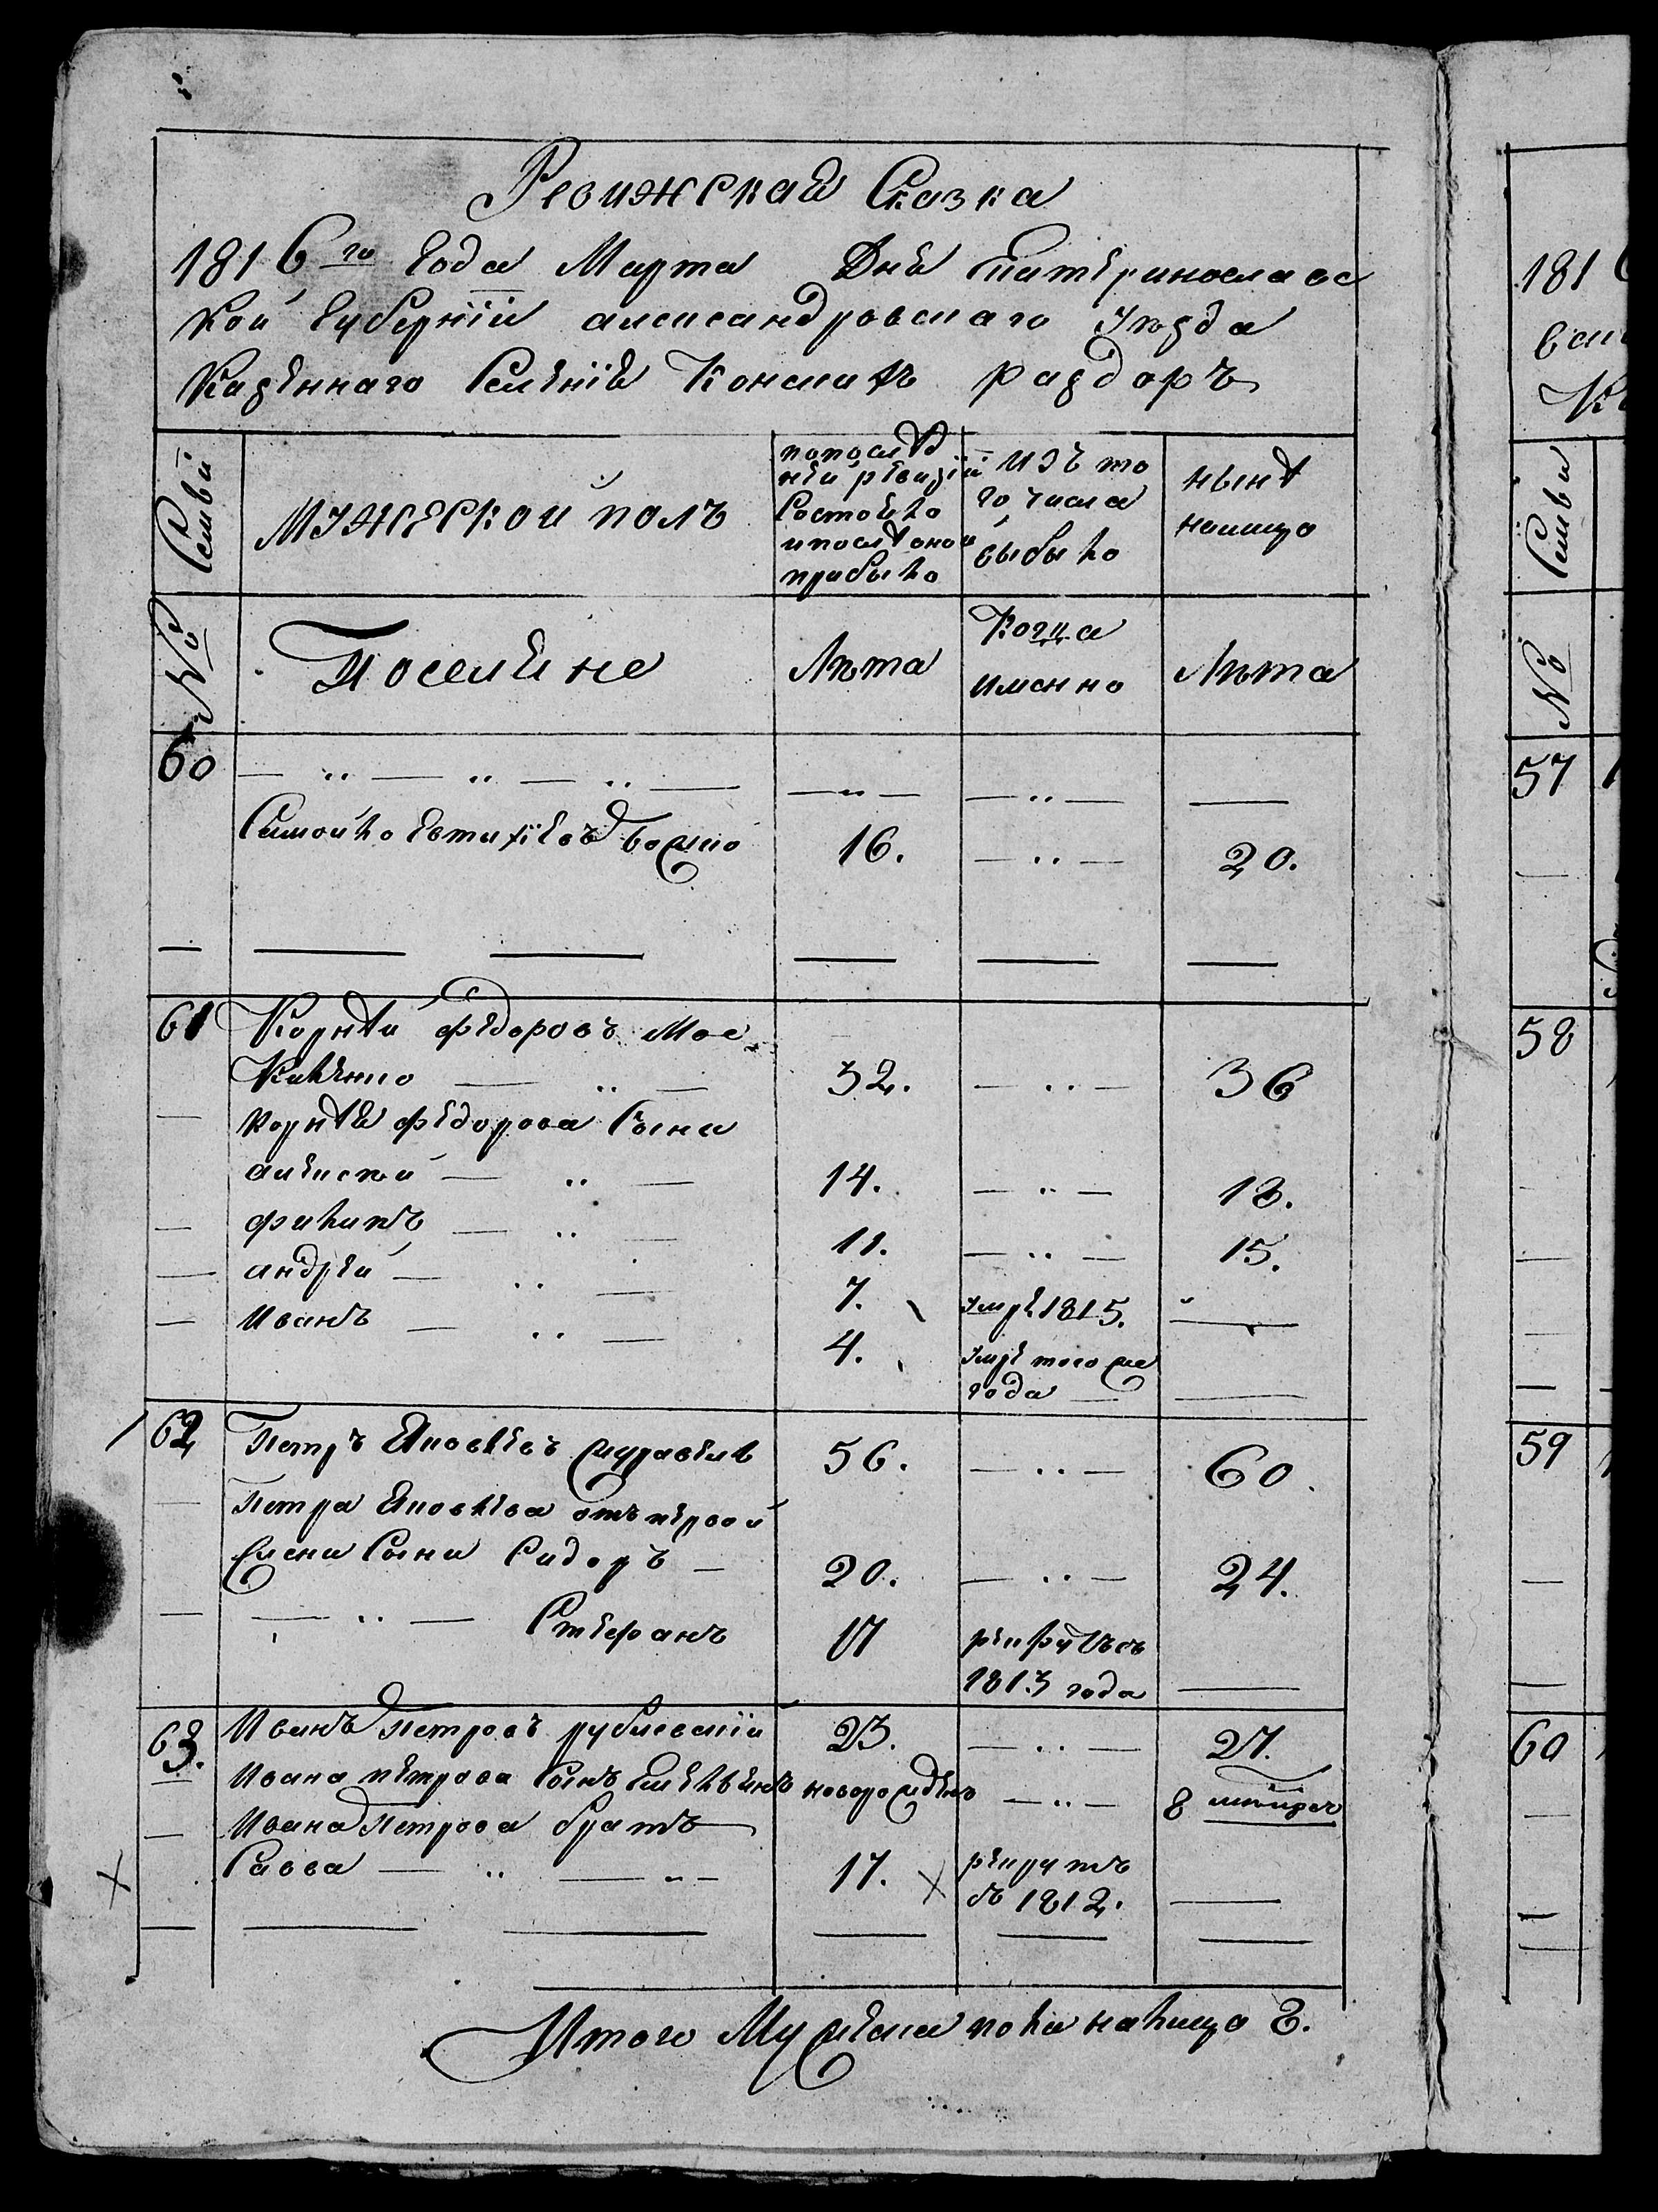 Ревижская Сказка
1816го года Марта Дня Екатеринославс
кой губернiи александровскаго уѣзда
Казеннаго Селенiя Конскихъ раздоръ
Семьи
мужескои полъ
попослѣд
неи ревизiи
Состояло
ипослѣоной
прибыло
изъ то
го числа
выбыло
нынѣ
налицо
№
Поселяне
Лѣта
Когда
именно
Лѣта
60
Самойло Евтихiевъ божко
16.
20.
61
Корнѣй федоровъ Мос
каленко
32.
36
корнѣя федорова Сыни
алексѣй
14.
18.
филипъ
11.
15.
андрей
7.
умре 1815.
Иванъ
4.
умре того же
года
62
Петръ Яковлевъ журавель
56.
60.
Петра Яковлева отъ первой
жени Сыни Сидоръ
20.
24.
Стефанъ
17
рекрутъ въ
1813 года
63.
Иванъ Петровъ рублевскiи
23.
27.
Ивана петрова Сынъ Емельянъ
новорожденъ
Ивана Петрова братъ
Савва
17.
рекрутъ
въ 1812.
Итого Мужеска пола налицо 8.
181
Семьи
№
57
58
59
60